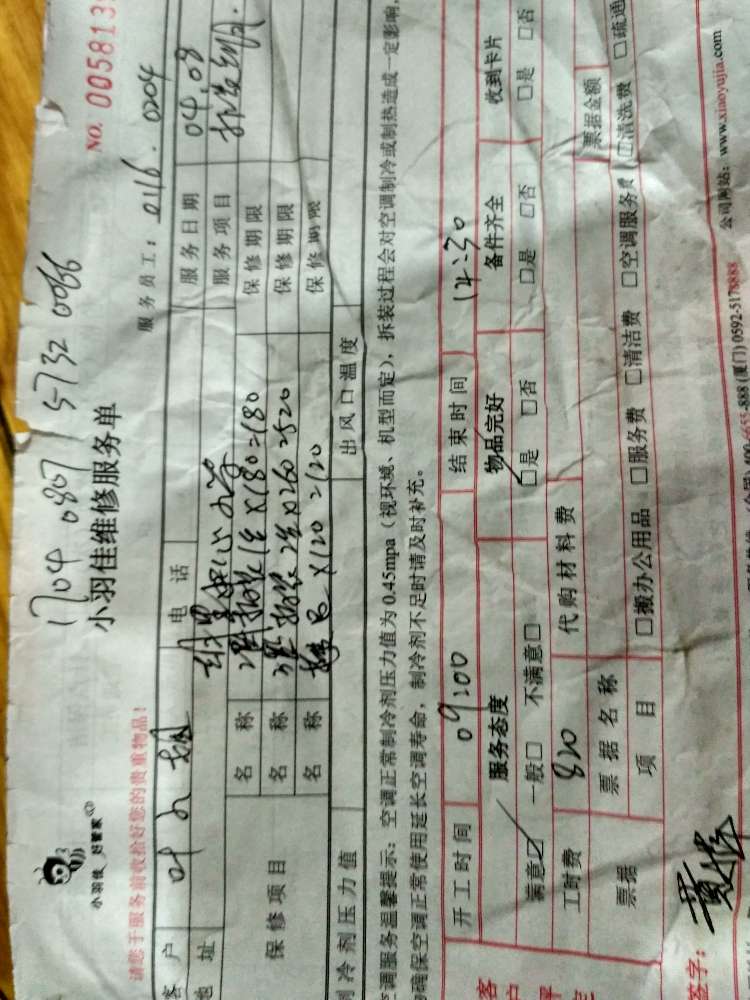 1704 0807 5732 0066
小羽佳 好管家
小羽佳维修服务单
NO. 005813
请您于服务前收拾好您的贵重物品!
服务员工: 0116. 0204
客户 叶 电话 服务日期 04.08
地址 服务项目
保修项目
名称 ×180=180 保修期限
名称 2 ×260=520 保修期限
名称 ×120=120 保修期限
制冷剂压力值 出风口温度
调服务温馨提示: 空调正常制冷剂压力值为 0.45mpa (视环境、机型而定), 拆装过程会对空调制冷或制热造成一定影响,
确保空调正常使用延长空调寿命, 制冷剂不足时请及时补充。
开工时间 09:00 结束时间 14:30
服务态度 物品完好 备件齐全 收到卡片
满意□ 一般□ 不满意□ □是 □否 □是 □否 □是 □否
工时费 820 代购材料费
票据 票据名称 票据金额
项目 □搬办公用品 □服务费 □清洁费 □空调服务费 □清洗费 □疏通
签字:
公司网站: www.xiaoyujia.com
(厦门) 0592-5178888